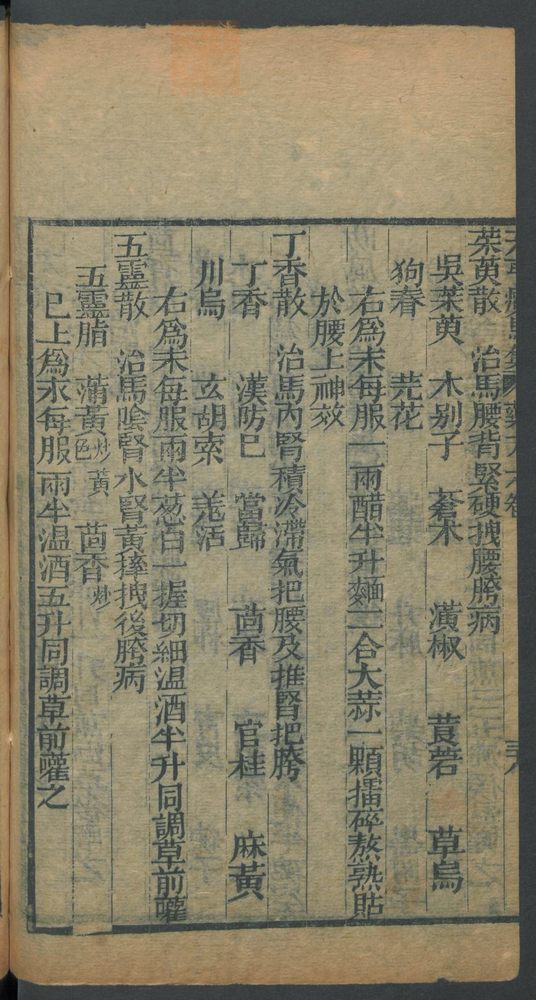 茱萸散　治馬腰背緊硬拽腰胯病
吳茱萸　木別子　蒼朮　漢椒　莨菪　草烏
狗脊　芫花
右爲末每服一兩醋半升麵三合大蒜一顆擂碎熬熟貼
於腰上神效
丁香散　治馬內腎積冷滯氣把腰及推腎把胯
丁香　漢防巳　當歸　茴香　官桂　麻黃
川烏　玄胡索　羌活
右爲末每服兩半葱白一握切細温酒半升同調草前嚾
五靈散　治馬陰腎水腎黃病拽後胯病
五靈脂　蒲黃炒黃色　茴香炒
巳上爲末每服兩半温酒五升同調草前嚾之